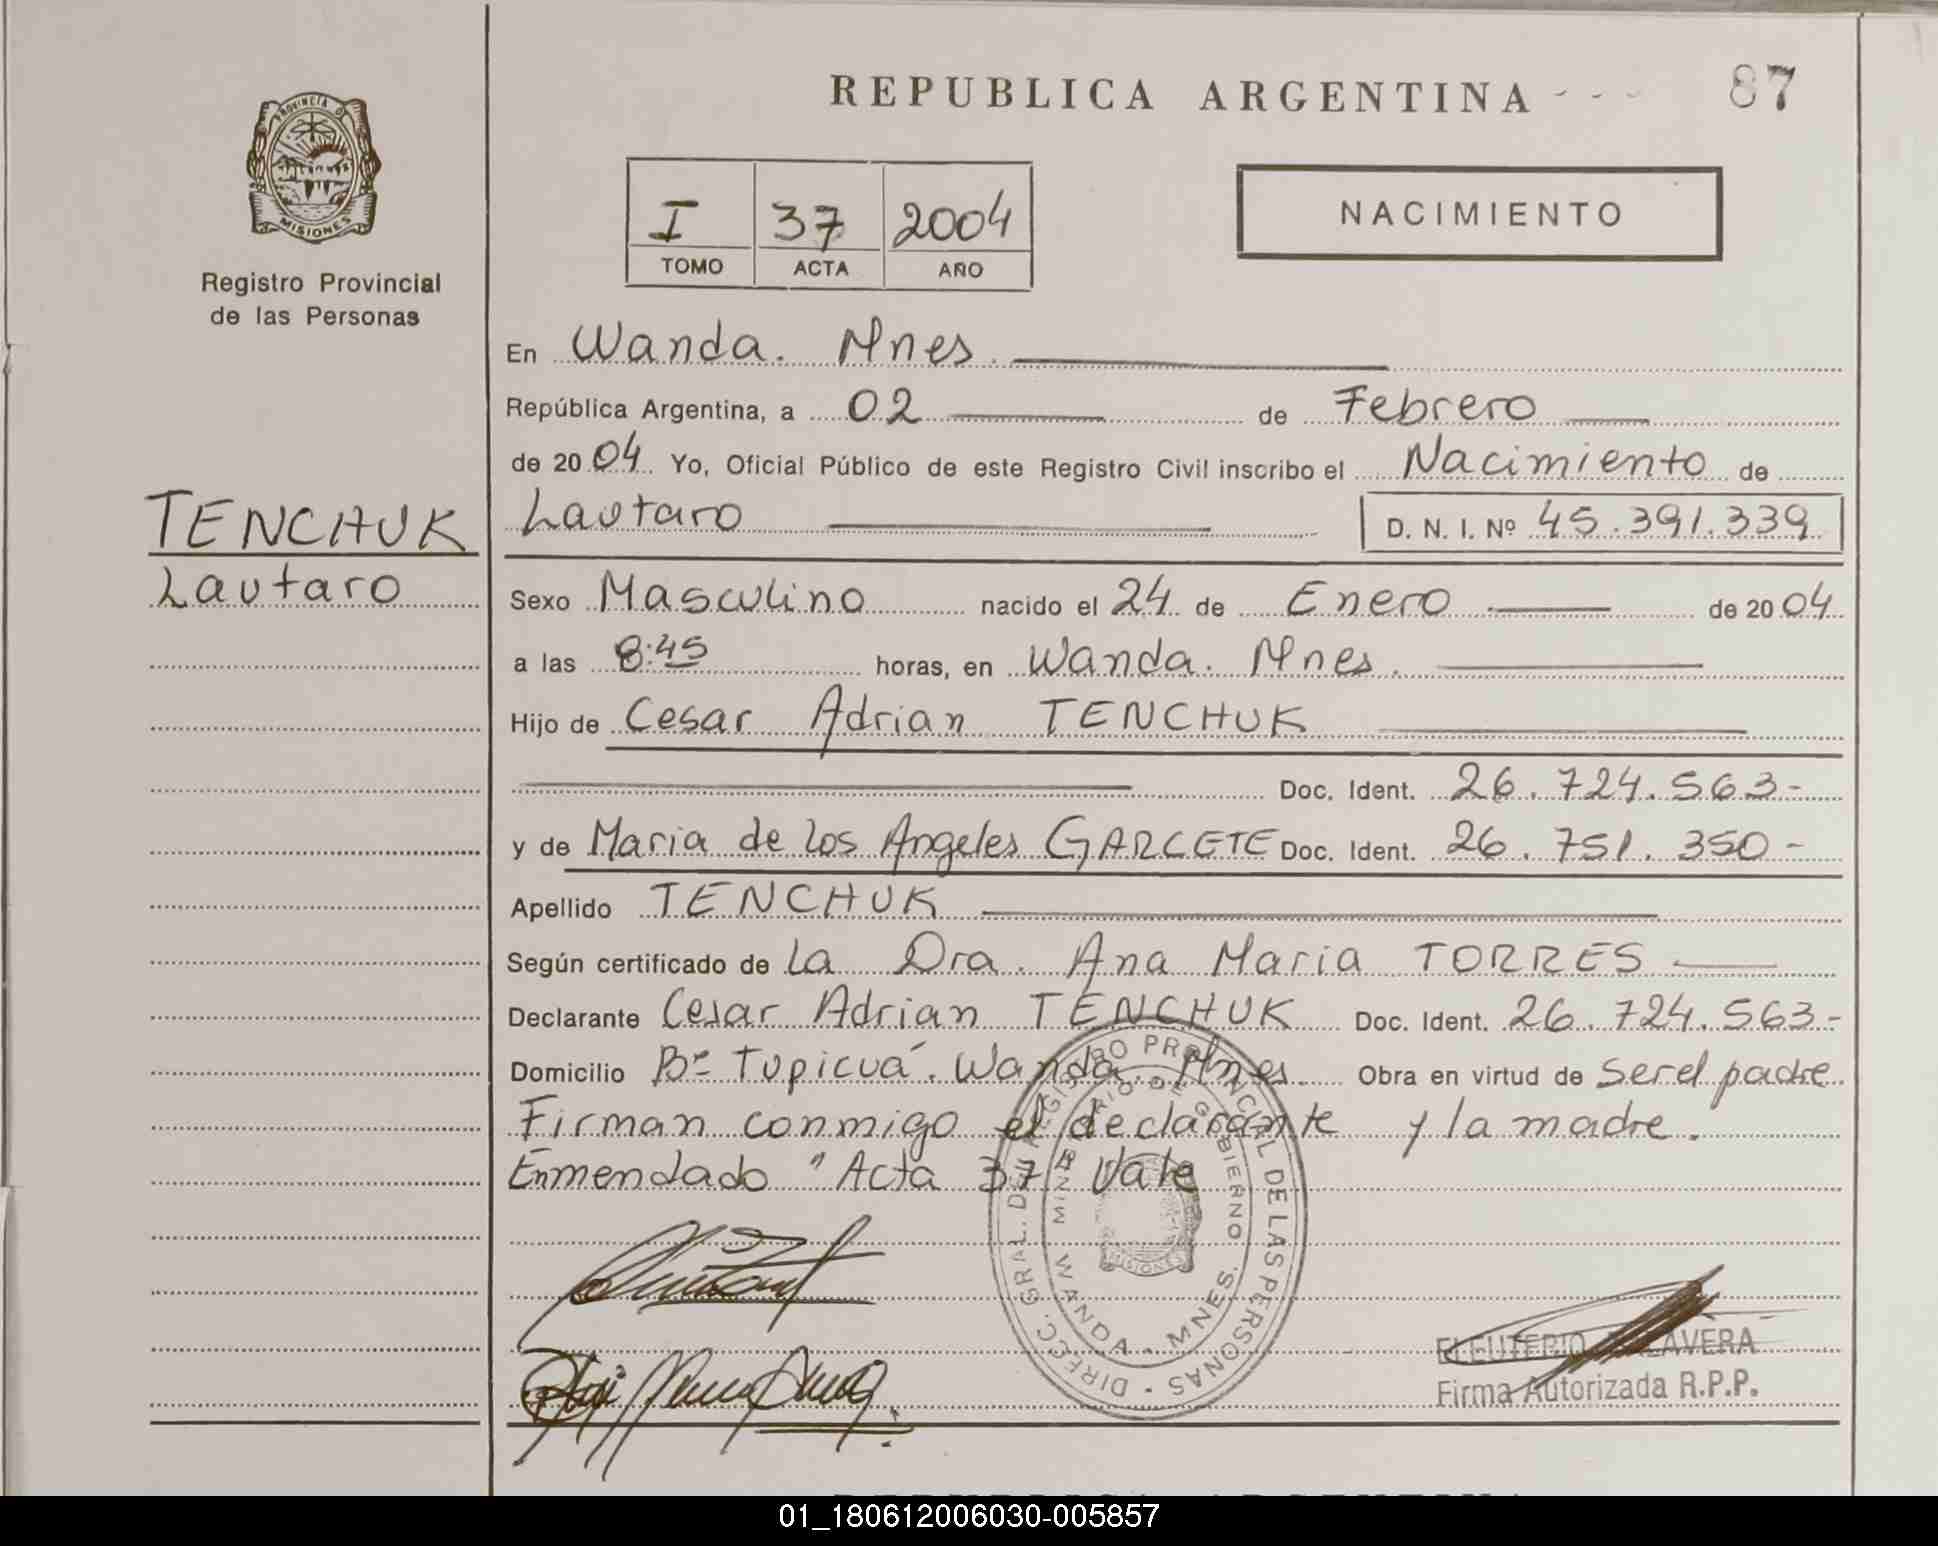 REPUBLICA ARGENTINA - - -
87
PROVINCIA D
MISIONES
Registro Provincial
de las Personas
I 37 2004
TOMO ACTA AÑO
NACIMIENTO
En Wanda. Mnes.
República Argentina, a 02 de Febrero
de 2004. Yo, Oficial Público de este Registro Civil inscribo el Nacimiento de
Lautaro D. N. I. Nº 45.391.339
TENCHUK
Lautaro
Sexo Masculino nacido el 24 de Enero de 2004
a las 8:45 horas, en Wanda. Mnes.
Hijo de Cesar Adrian TENCHUK
Doc. Ident. 26.724.563-
y de Maria de los Angeles GARCETE Doc. Ident. 26.751.350-
Apellido TENCHUK
Según certificado de La Dra. Ana Maria TORRES
Declarante Cesar Adrian TENCHUK Doc. Ident. 26.724.563-
Domicilio Bº Tupicuá. Wanda. Mnes. Obra en virtud de Ser el padre
Firman conmigo el declarante y la madre.
Enmendado "Acta 37" Vale
DIRECC. GRAL. DEL REGISTRO PROVINCIAL DE LAS PERSONAS
MINISTERIO DE GOBIERNO
WANDA - MNES.
MISIONES
ELEUTERIO
Firma Autorizada R.P.P.
01_180612006030-005857